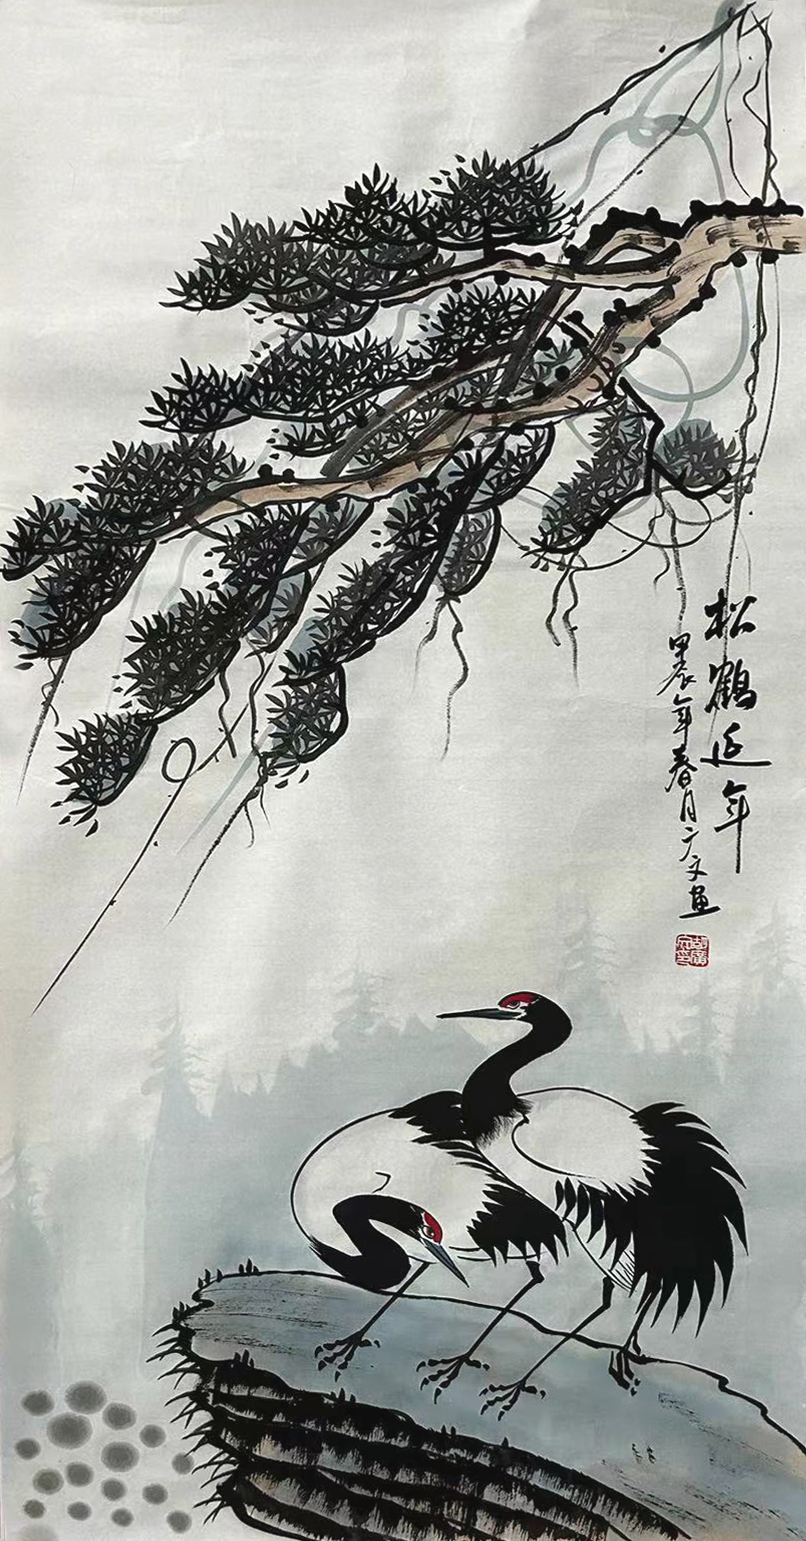 松鹤延年
甲辰年春月广文画